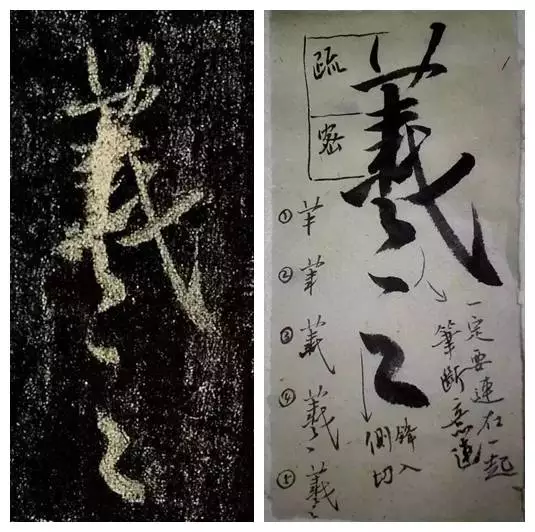 羲之
羲之
疏
密
①
②
③
④
⑤
一定要連在一起
筆斷意連
側鋒
切入